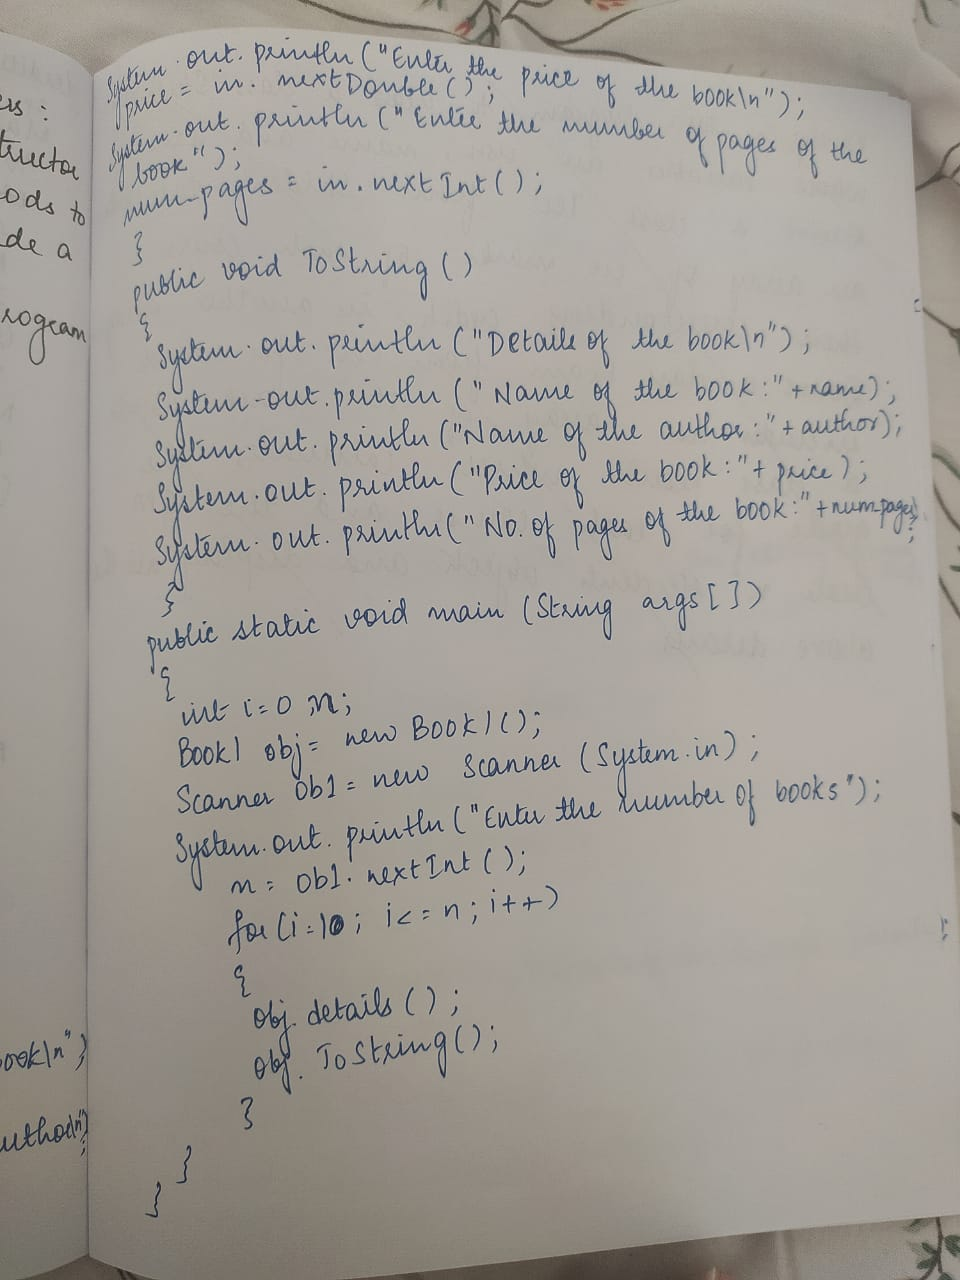 ers :
tructor
ods to
de a
rogram
ook\n")
uthor\n")
;
System.out.println("Enter the price of the book\n");
price = in.nextDouble();
System.out.println("Enter the number of pages of the
book");
num-pages = in.nextInt();
}
public void ToString()
{
System.out.println("Details of the book\n");
System.out.println("Name of the book:"+name);
System.out.println("Name of the author:"+author);
System.out.println("Price of the book:"+price);
System.out.println("No. of pages of the book:"+numpages)
;
}
public static void main (String args[])
{
int i=0, n;
Book1 obj= new Book1();
Scanner Ob1 = new Scanner (System.in);
System.out.println("Enter the number of books");
n = Ob1.nextInt();
for(i=1; i<=n; i++)
{
obj.details();
obj.ToString();
}
}
}